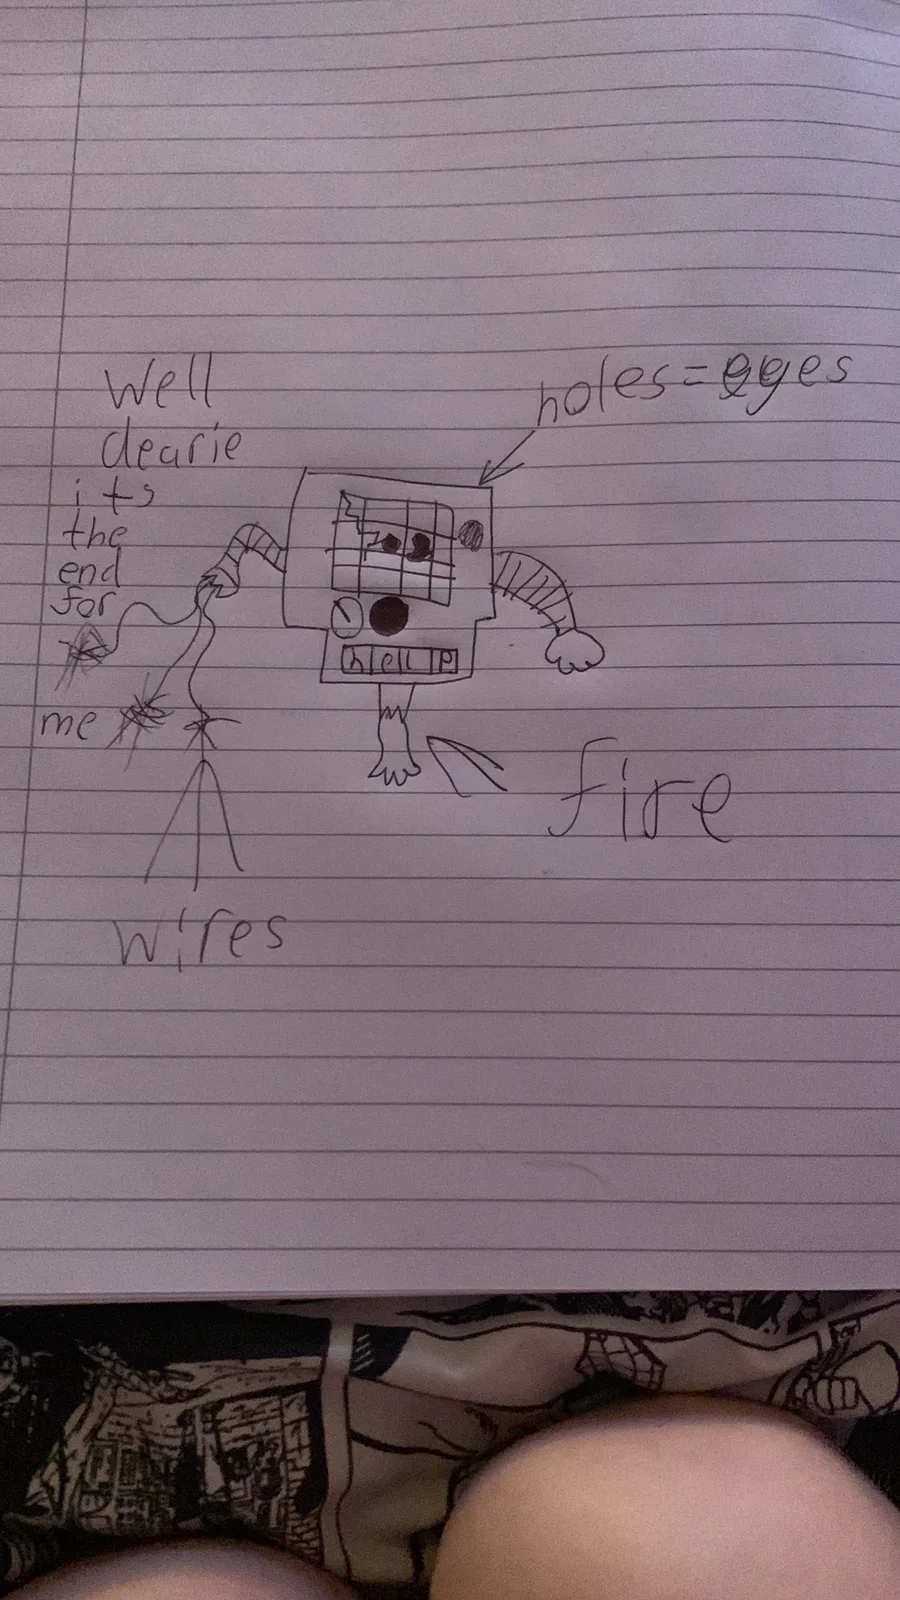 Well
dearie
its
the
end
for
me
holes = eyes
hello
fire
wires